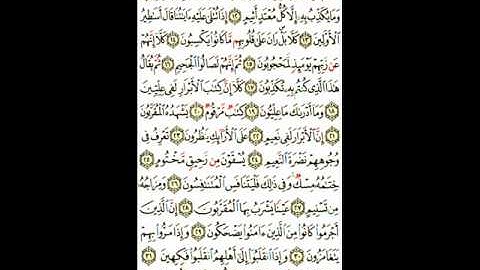 وَمَا يُكَذِّبُ بِهِۦٓ إِلَّا كُلُّ مُعْتَدٍ أَثِيمٍ ١٢ إِذَا تُتْلَىٰ عَلَيْهِ ءَايَٰتُنَا قَالَ أَسَٰطِيرُ
ٱلْأَوَّلِينَ ١٣ كَلَّا بَلْ رَانَ عَلَىٰ قُلُوبِهِم مَّا كَانُوا۟ يَكْسِبُونَ ١٤ كَلَّآ إِنَّهُمْ
عَن رَّبِّهِمْ يَوْمَئِذٍ لَّمَحْجُوبُونَ ١٥ ثُمَّ إِنَّهُمْ لَصَالُوا۟ ٱلْجَحِيمِ ١٦ ثُمَّ يُقَالُ
هَٰذَا ٱلَّذِى كُنتُم بِهِۦ تُكَذِّبُونَ ١٧ كَلَّآ إِنَّ كِتَٰبَ ٱلْأَبْرَارِ لَفِى عِلِّيِّينَ
١٨ وَمَآ أَدْرَىٰكَ مَا عِلِّيُّونَ ١٩ كِتَٰبٌ مَّرْقُومٌ ٢٠ يَشْهَدُهُ ٱلْمُقَرَّبُونَ
٢١ إِنَّ ٱلْأَبْرَارَ لَفِى نَعِيمٍ ٢٢ عَلَى ٱلْأَرَآئِكِ يَنظُرُونَ ٢٣ تَعْرِفُ فِى
وُجُوهِهِمْ نَضْرَةَ ٱلنَّعِيمِ ٢٤ يُسْقَوْنَ مِن رَّحِيقٍ مَّخْتُومٍ ٢٥
خِتَٰمُهُۥ مِسْكٌ وَفِى ذَٰلِكَ فَلْيَتَنَافَسِ ٱلْمُتَنَٰفِسُونَ ٢٦ وَمِزَاجُهُۥ
مِن تَسْنِيمٍ ٢٧ عَيْنًا يَشْرَبُ بِهَا ٱلْمُقَرَّبُونَ ٢٨ إِنَّ ٱلَّذِينَ
أَجْرَمُوا۟ كَانُوا۟ مِنَ ٱلَّذِينَ ءَامَنُوا۟ يَضْحَكُونَ ٢٩ وَإِذَا مَرُّوا۟ بِهِمْ
يَتَغَامَزُونَ ٣٠ وَإِذَا ٱنقَلَبُوٓا۟ إِلَىٰٓ أَهْلِهِمُ ٱنقَلَبُوا۟ فَكِهِينَ ٣١